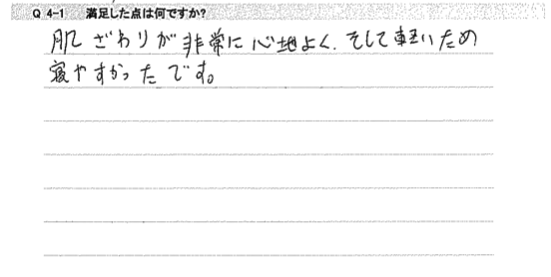 Q 4-1 満足した点は何ですか?
肌ざわりが非常に心地よく、そして軽いため
寝やすかったです。